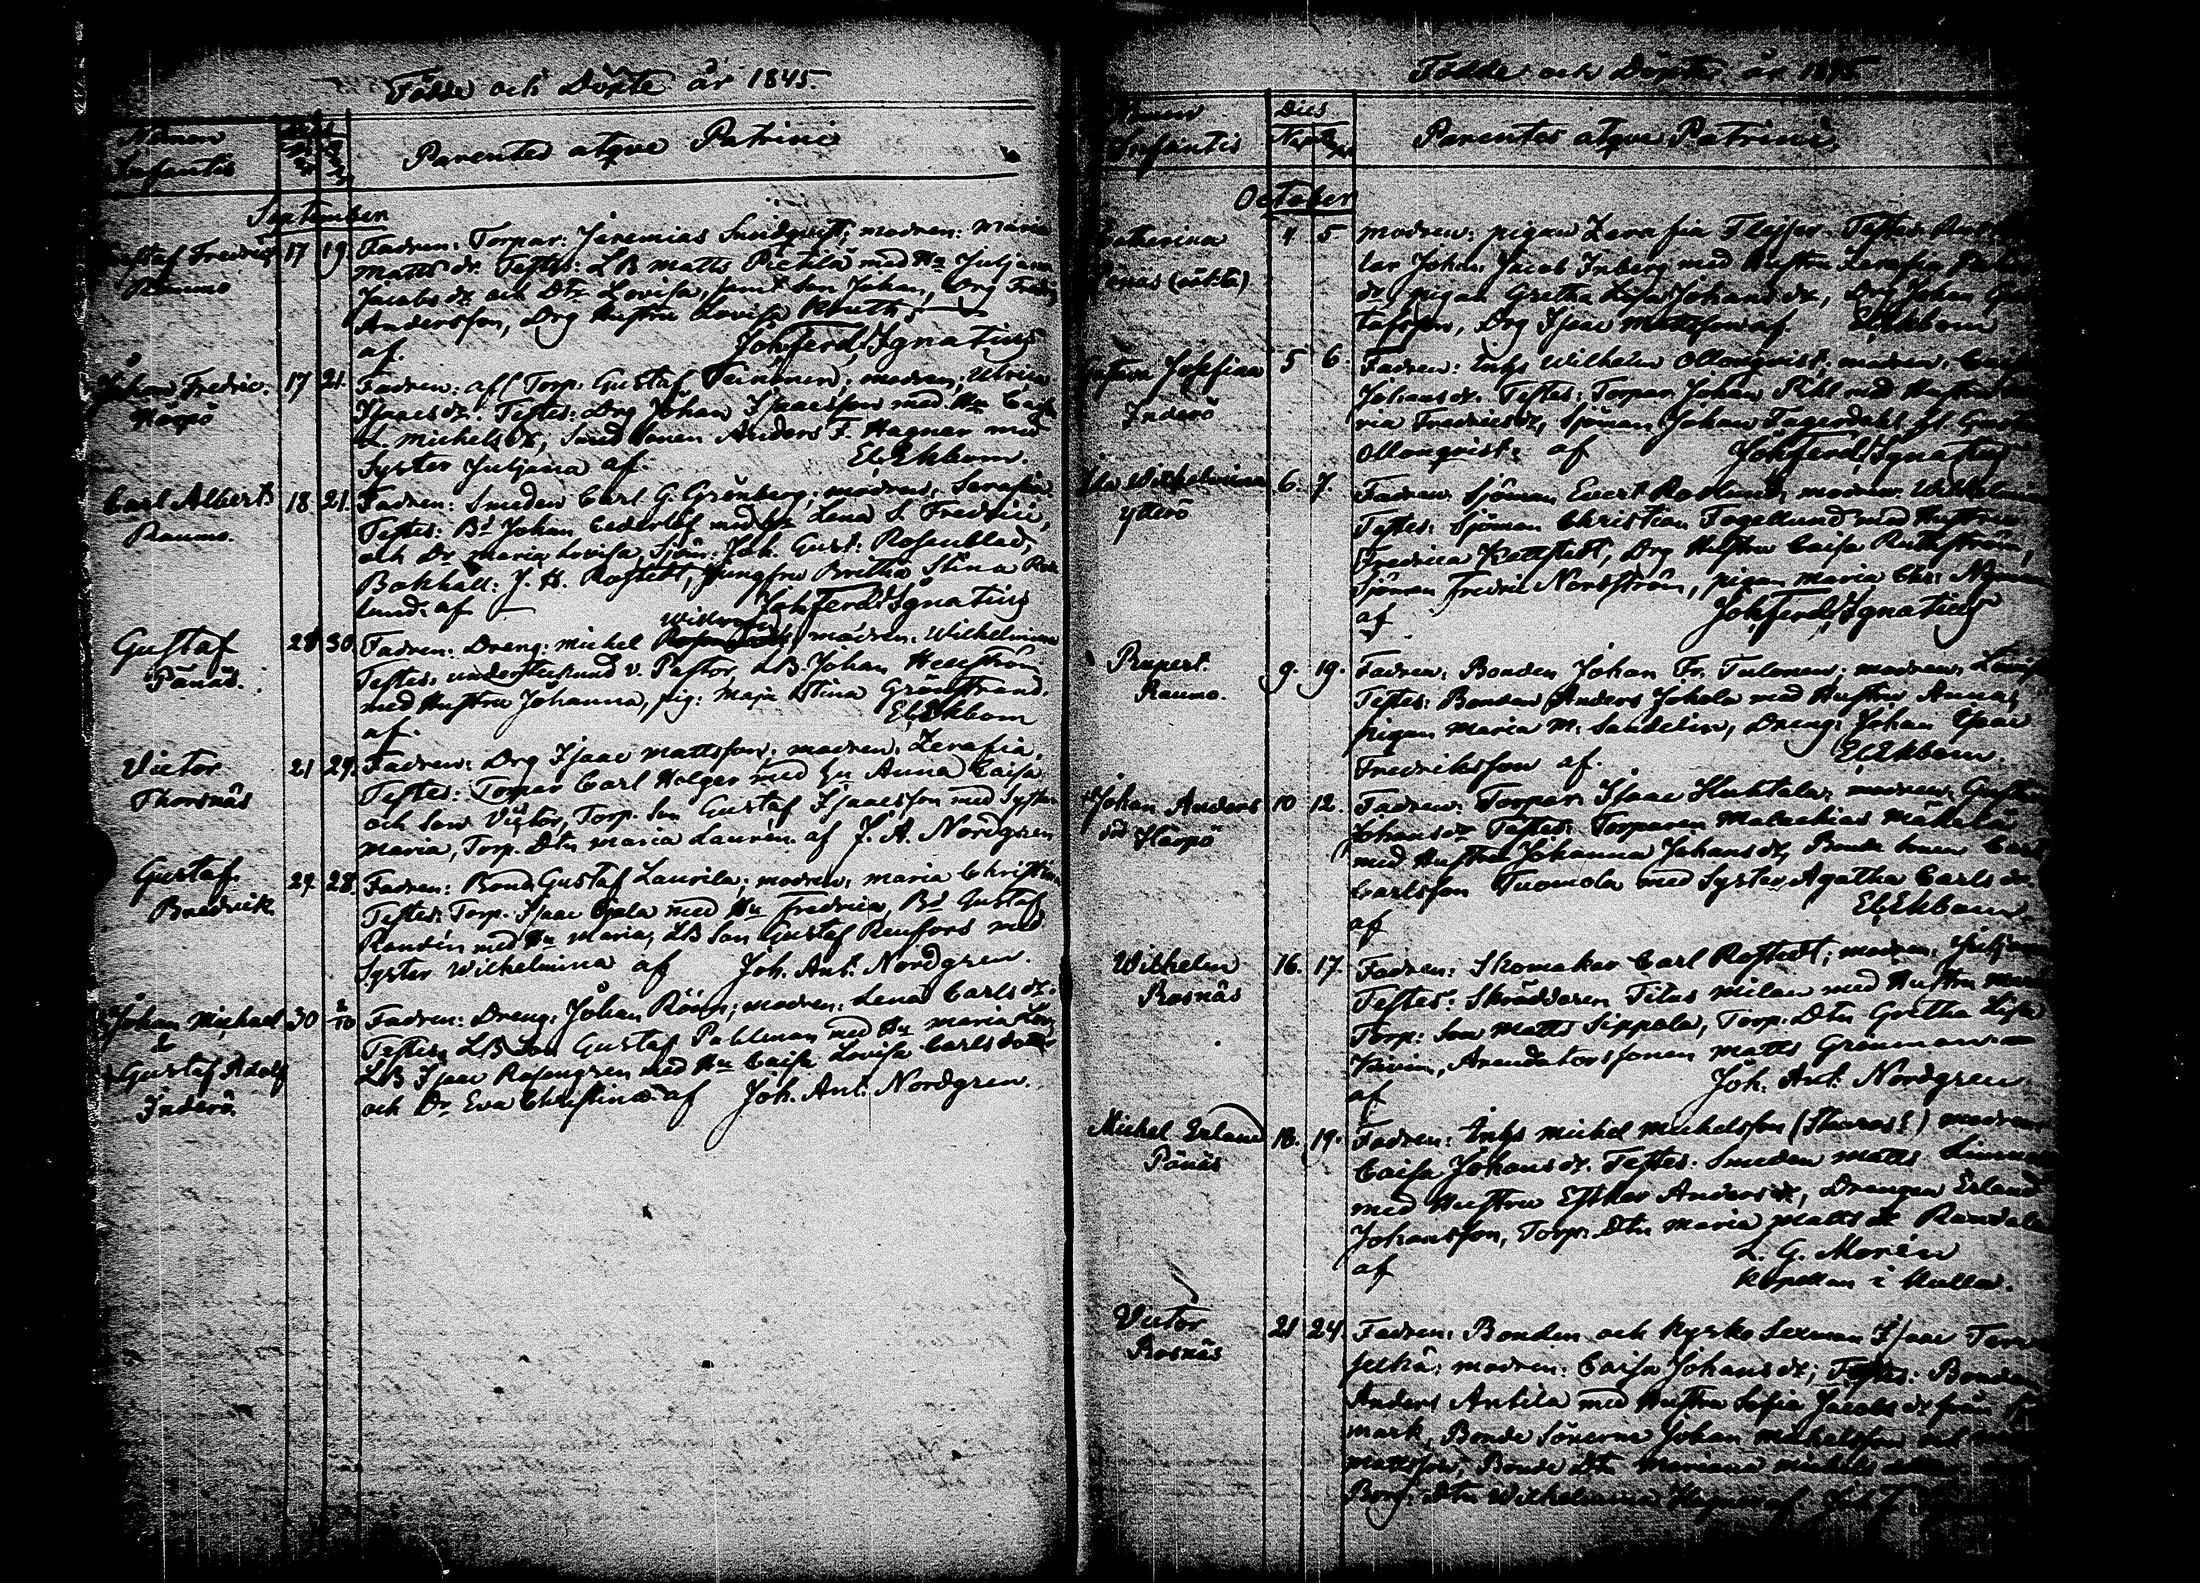 Födde och Döpte år 1845.
Nomen
Infantis
Parentes atque Patrini
September
Gustaf Fredric 17 19 Fadren: Torpar: Jeremias Sundqvist; modren: Maria
Raumo
Matts dr. Testes: LB Matts Pietilä med Hu Juljana
Jacobs dr och Dtr Lovisa, samt son Johan, Drg Fredr
Andersson, Drg Hustru Lovisa Knuth,
af. Joh Ferd Ignatius
Johan Fredric. 17 21. Fadren: afl Torp: Gustaf Seinonen; modren: Ulrica
Harpö
Isaacs dr. Testes: Drg Johan Isaacsson med Hu Caisa
L. Michels dr, Smed sonen Anders F. Hagner med
Syster Juljana af. El Ekbom.
Carl Albert 18 21. Fadren: Smeden Carl G. Grönberg; modren: Serafia
Raumo.
Testes: Bd Johan Cederlöf med Hu Lena S. Fredrici,
och Dr Maria Lovisa, Sjöm: Joh. Gust: Rosenblad,
Bokhåll: J. H. Rostedt, Jungfru Britha Stina
lund. af Joh Ferd Ignatius
Gustaf 28 30. Fadren: Dreng: Michel modren: Wilhelmina
Pänäs.
Testes: undertecknad v. Pastor, LB Johan Hellström
med Hustru Johanna, pig: Maja Stina Grönstrand.
af. El Ekbom
Victor 21 29. Fadren: Drg Isaac Mattsson; modren: Zerafia,
Thorsnäs
Testes: Torpar Carl Holger med Hu Anna Caisa
och Son Victor, Torp. Son Gustaf Isaacsson med Syster
Maria, Torp. Dtr Maria Laurén. af J. A. Nordgren
Gustaf. 27. 28. Fadren: Bond. Gustaf Laurila; modren: Maria Christina
Bredvik.
Testes: Torp. Isaac Ojala med Hu Fredrica, Bd Gustaf
Randén med Hu Maria, LB Son Gustaf Renfors med
Syster Wilhelmina af Joh. Ant. Nordgren.
Johan Michael 30 2/10 Fadren: Dreng: Johan Rönn; modren: Lena Carls dr.
&
Gustaf Adolf
Inderö.
Testes: LB Son Gustaf Pahlman med Hu Maria
LB Isaac Rosengren med Hu Caisa Lovisa Carls dotter
och Dr Eva Christina. af Joh. Ant. Nordgren.
Födde och Döpte år 1845
Nomen
Infantis
Dies
Parentes atque Patrini.
October
Catharina 4 5. modren: pigan Zerafia Testes:
Pänäs (oäkta)
lar Johan Jacob Inberg med Hustru Zerafia
dr, pigan Gretha Lisa Johans dr, Drg Johan
tafsson, Drg Isaac Mattsson af. El Ekbom
Josefina 5 6. Fadren: Inhs Wilhelm Ollonqvist; modren: Caisa
Inderö
Johans dr. Testes: Torpar Johan Pihl med Hustru
ria Fredrics dr, Sjöman Johan Fagerdahl, Gustaf
Ollonqvist: af Joh Ferd Ignatius
Wilhelmina 6. 7. Fadren: Sjöman Evert Roslund; modren: Wilhelmina
Ytterö
Testes: Sjöman Christian Fogellund med Hustru
Fredrica Kettstedt, Drg Hustru Caisa
Sjöman Fredric Nordström, pigan Maria Chr: Nyman
af Joh Ferd Ignatius
Rupert. 9. 19. Fadren: Bonden Johan Fr. Tulonen; modren: Lovisa
Raumo.
Testes: Bonden Anders Jokela med Hustru Anna,
pigan Maria M. Sandelin, Dreng: Johan Isaac
Fredriksson af. El Ekbom.
Johan Anders 10 12. Fadren: Torpar: Isaac Huhtala; modren: Gustava
Harpö
Johans dr Testes: Torparen Malachias Mäkelä
med Hustru Johanna Johans dr, Bonde sonen Carl
Carlsson Tuomola med Syster Agatha Carls dr.
af El Ekbom.
Wilhelm 16. 17. Fadren: Skomakar Carl Rostedt; modren: Juljana
Rosnäs
Testes: Skräddaren Titus Milan med Hustru
Torp: Son Matts Sippola, Torp: Dtr Gretha Lisa
Kivin, Arendatorssonen Matts Grönman
af Joh. Ant: Nordgren.
Michel Erland 18. 19. Fadren: Inhs Michel Michelsson modren:
Pänäs
Caisa Johans dr. Testes: Smeden Matts
med Hustru Esther Anders dr, Drengen Erland
Johansson, Torp: Dtr Maria Matts dr
af L. G. Morén
Kapellan i Kulla.
Victor 21 24. Fadren: Bonden och Kyrko Sexman Isaac
Rosnäs
modren: Caisa Johans dr; Testes: Bonden
Anders Antila med Hustru Sofia Jacobs dr från
mark, Bonde Sönerna Johan Michelsson och
Mattsson, Bonde Dtr Mariana Michels
Dtr Wilhelmina Hagner af